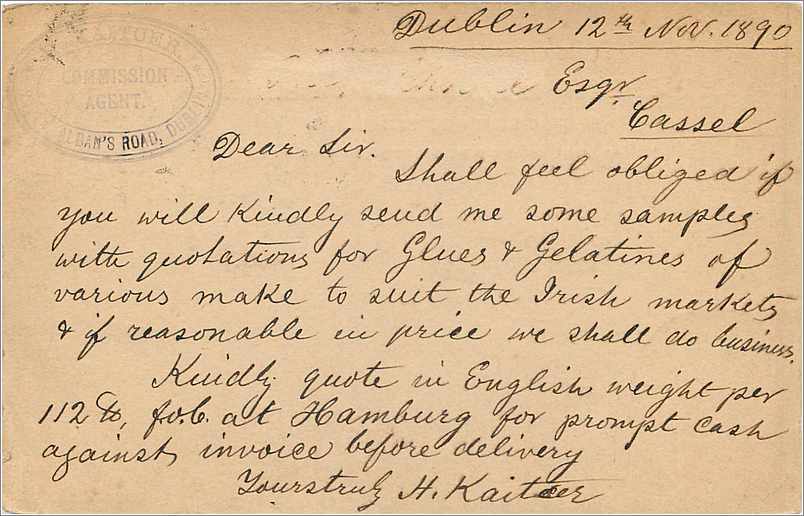 COMMISSION
AGENT.
ALBAN'S ROAD, DUBLIN
Dublin 12th Nov. 1890
Esqr.
Cassel
Dear Sir.
Shall feel obliged if
you will Kindly send me some samples
with quotations for Glues & Gelatines of
various make to suit the Irish markets
& if reasonable in price we shall do business.
Kindly quote in English weight per
112 lb, f.o.b. at Hamburg for prompt cash
against invoice before delivery
Yours truly H. Kaitcer